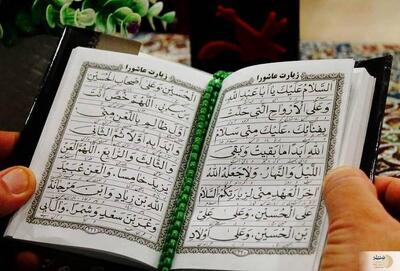 زیارت عاشورا
اَلسَّلامُ عَلَیْکَ یا اَبا عَبْدِ اللهِ
وَعَلَی الْاَرْواحِ الَّتی حَلَّتْ
بِفِنائِکَ عَلَیْکَ مِنّی سَلامُ
اللهِ اَبَداً ما بَقیتُ وَبَقِیَ
اللَّیْلُ وَالنَّهارُ وَلا جَعَلَهُ اللهُ
آخِرَ الْعَهْدِ مِنّی لِزِیارَتِکُمْ اَلسَّلامُ
عَلَی الْحُسَیْنِ وَعَلی عَلِیِّ بْنِ
الْحُسَیْنِ وَعَلی اَوْلادِ
زیارت عاشورا
الْحُسَیْنِ وَعَلی اَصْحابِ الْحُسَیْنِ
اَللّهُمَّ خُصَّ اَنْتَ
اَوَّلَ ظالِمٍ بِاللَّعْنِ مِنّی
وَابْدَأْ بِهِ اَوَّلاً ثُمَّ الثّانِیَ
وَالثّالِثَ وَالرّابِعَ اَللّهُمَّ الْعَنْ
یَزیدَ خامِساً وَالْعَنْ عُبَیْدَ
اللهِ بْنَ زِیادٍ وَابْنَ مَرْجانَةَ
وَعُمَرَ بْنَ سَعْدٍ وَشِمْراً وَآلَ اَبی